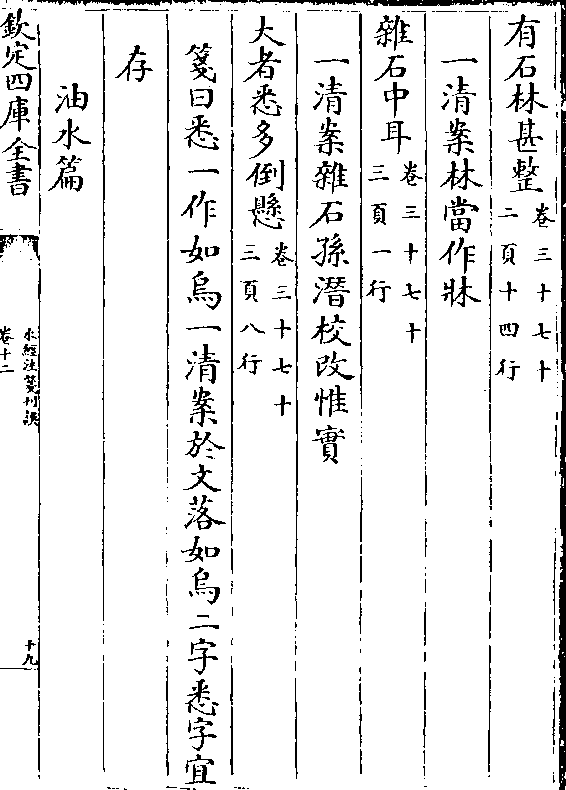 有石林甚整卷三十七十二頁十四行
一清案林當作牀
雜石中耳卷三十七十三頁一行
一清案雜石孫潛校改惟實
大者悉多倒懸卷三十七十三頁八行
箋曰悉一作如烏一清案於文落如烏二字悉字宜
存
油水篇
欽定四庫全書
水經注箋刊誤
卷十二
十九